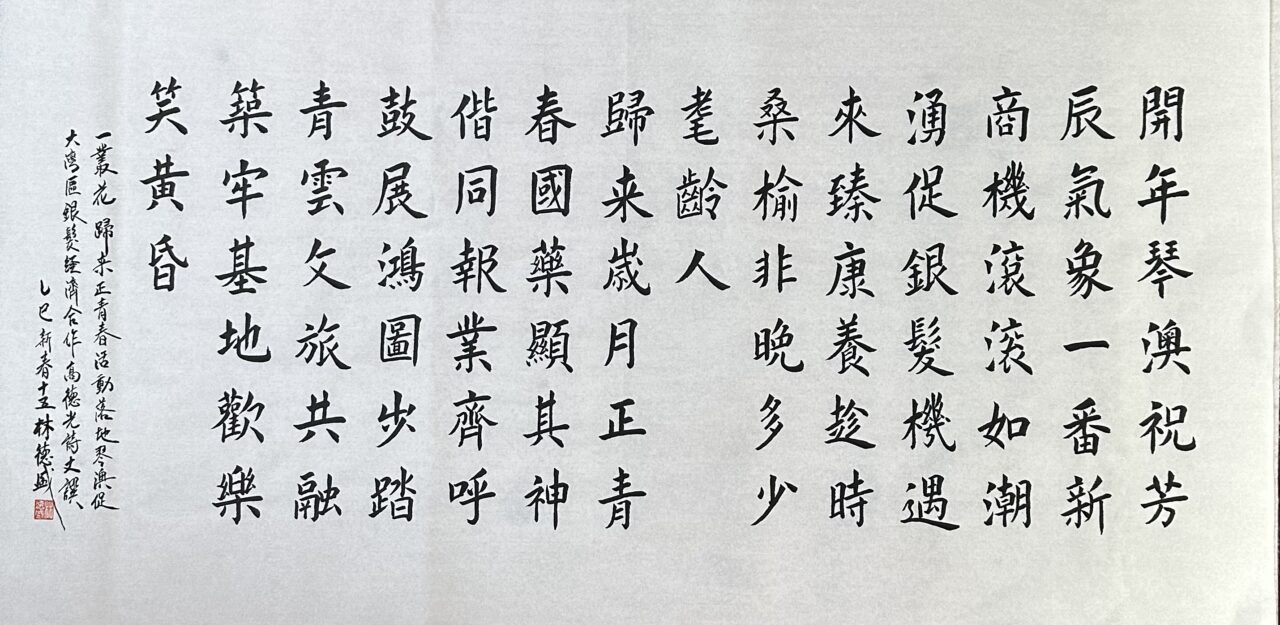 開年琴澳祝芳
辰氣象一番新
商機滾滾如潮
湧促銀髮機遇
來臻康養趁時
桑榆非晚多少
耄齡人
歸来歲月正青
春國藥顯其神
偕同報業齊呼
鼓展鴻圖步踏
青雲文旅共融
築牢基地歡樂
笑黄昏
一叢花 歸来正青春活動落地琴澳促
大湾區銀髮經濟合作高德光詩丈譔
乙巳新春十五林德盛